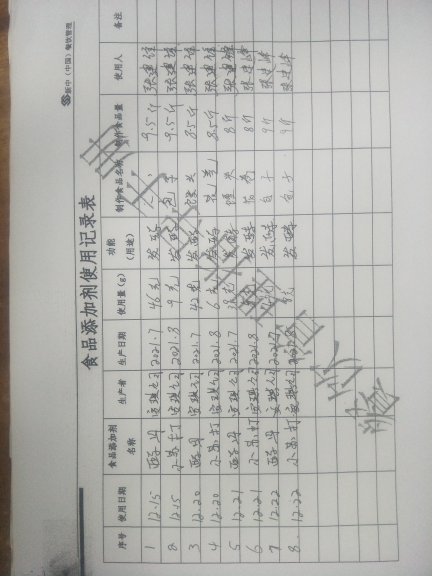 新中（中国）餐饮管理
食品添加剂使用记录表
序号 使用日期 食品添加剂名称 生产者 生产日期 使用量(g) 功能（用途） 制作食品名称 制作食品量 使用人 备注
1 12.15 酵母 安琪公司 2021.7 46克 发酵 9.5斤 张建锋
2 12.15 小苏打 安琪公司 2021.8 9克 发酵 包子 9.5斤 张建锋
3 12.20 酵母 安琪公司 2021.7 42克 发酵 8.5斤 张建锋
4 12.20 小苏打 安琪公司 2021.8 6克 发酵 8.5斤 张建锋
5 12.21 酵母 安琪公司 2021.7 发酵 8斤 张建锋
6 12.21 小苏打 安琪公司 2021.8 发酵 8斤 张建锋
7 12.22 酵母 安琪公司 发酵 包子 9斤 张建锋
8 12.22 小苏打 安琪公司 2021.8 发酵 包子 9斤 张建锋